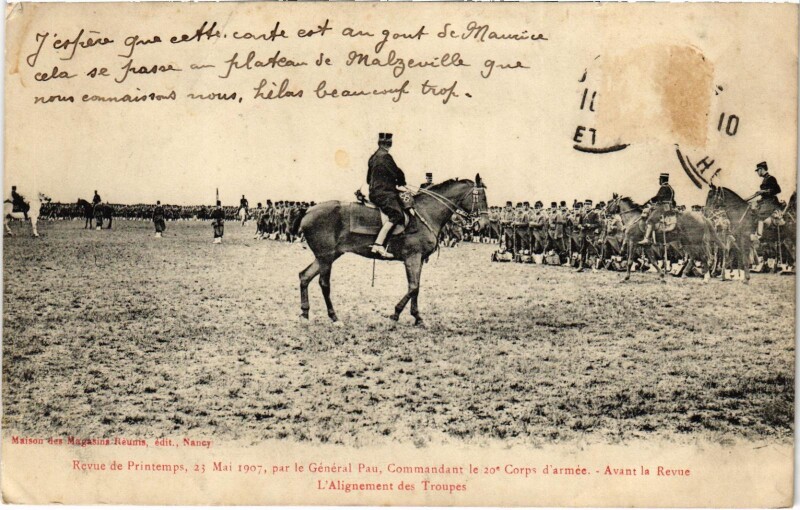 J'espère que cette carte est au gout de Maurice
cela se passe au plateau de Malzeville que
nous connaissons nous, hélas beaucoup trop.
10
10
ET
Maison des Magasins Réunis, édit., Nancy
Revue de Printemps, 23 Mai 1907, par le Général Pau, Commandant le 20e Corps d'armée. - Avant la Revue
L'Alignement des Troupes